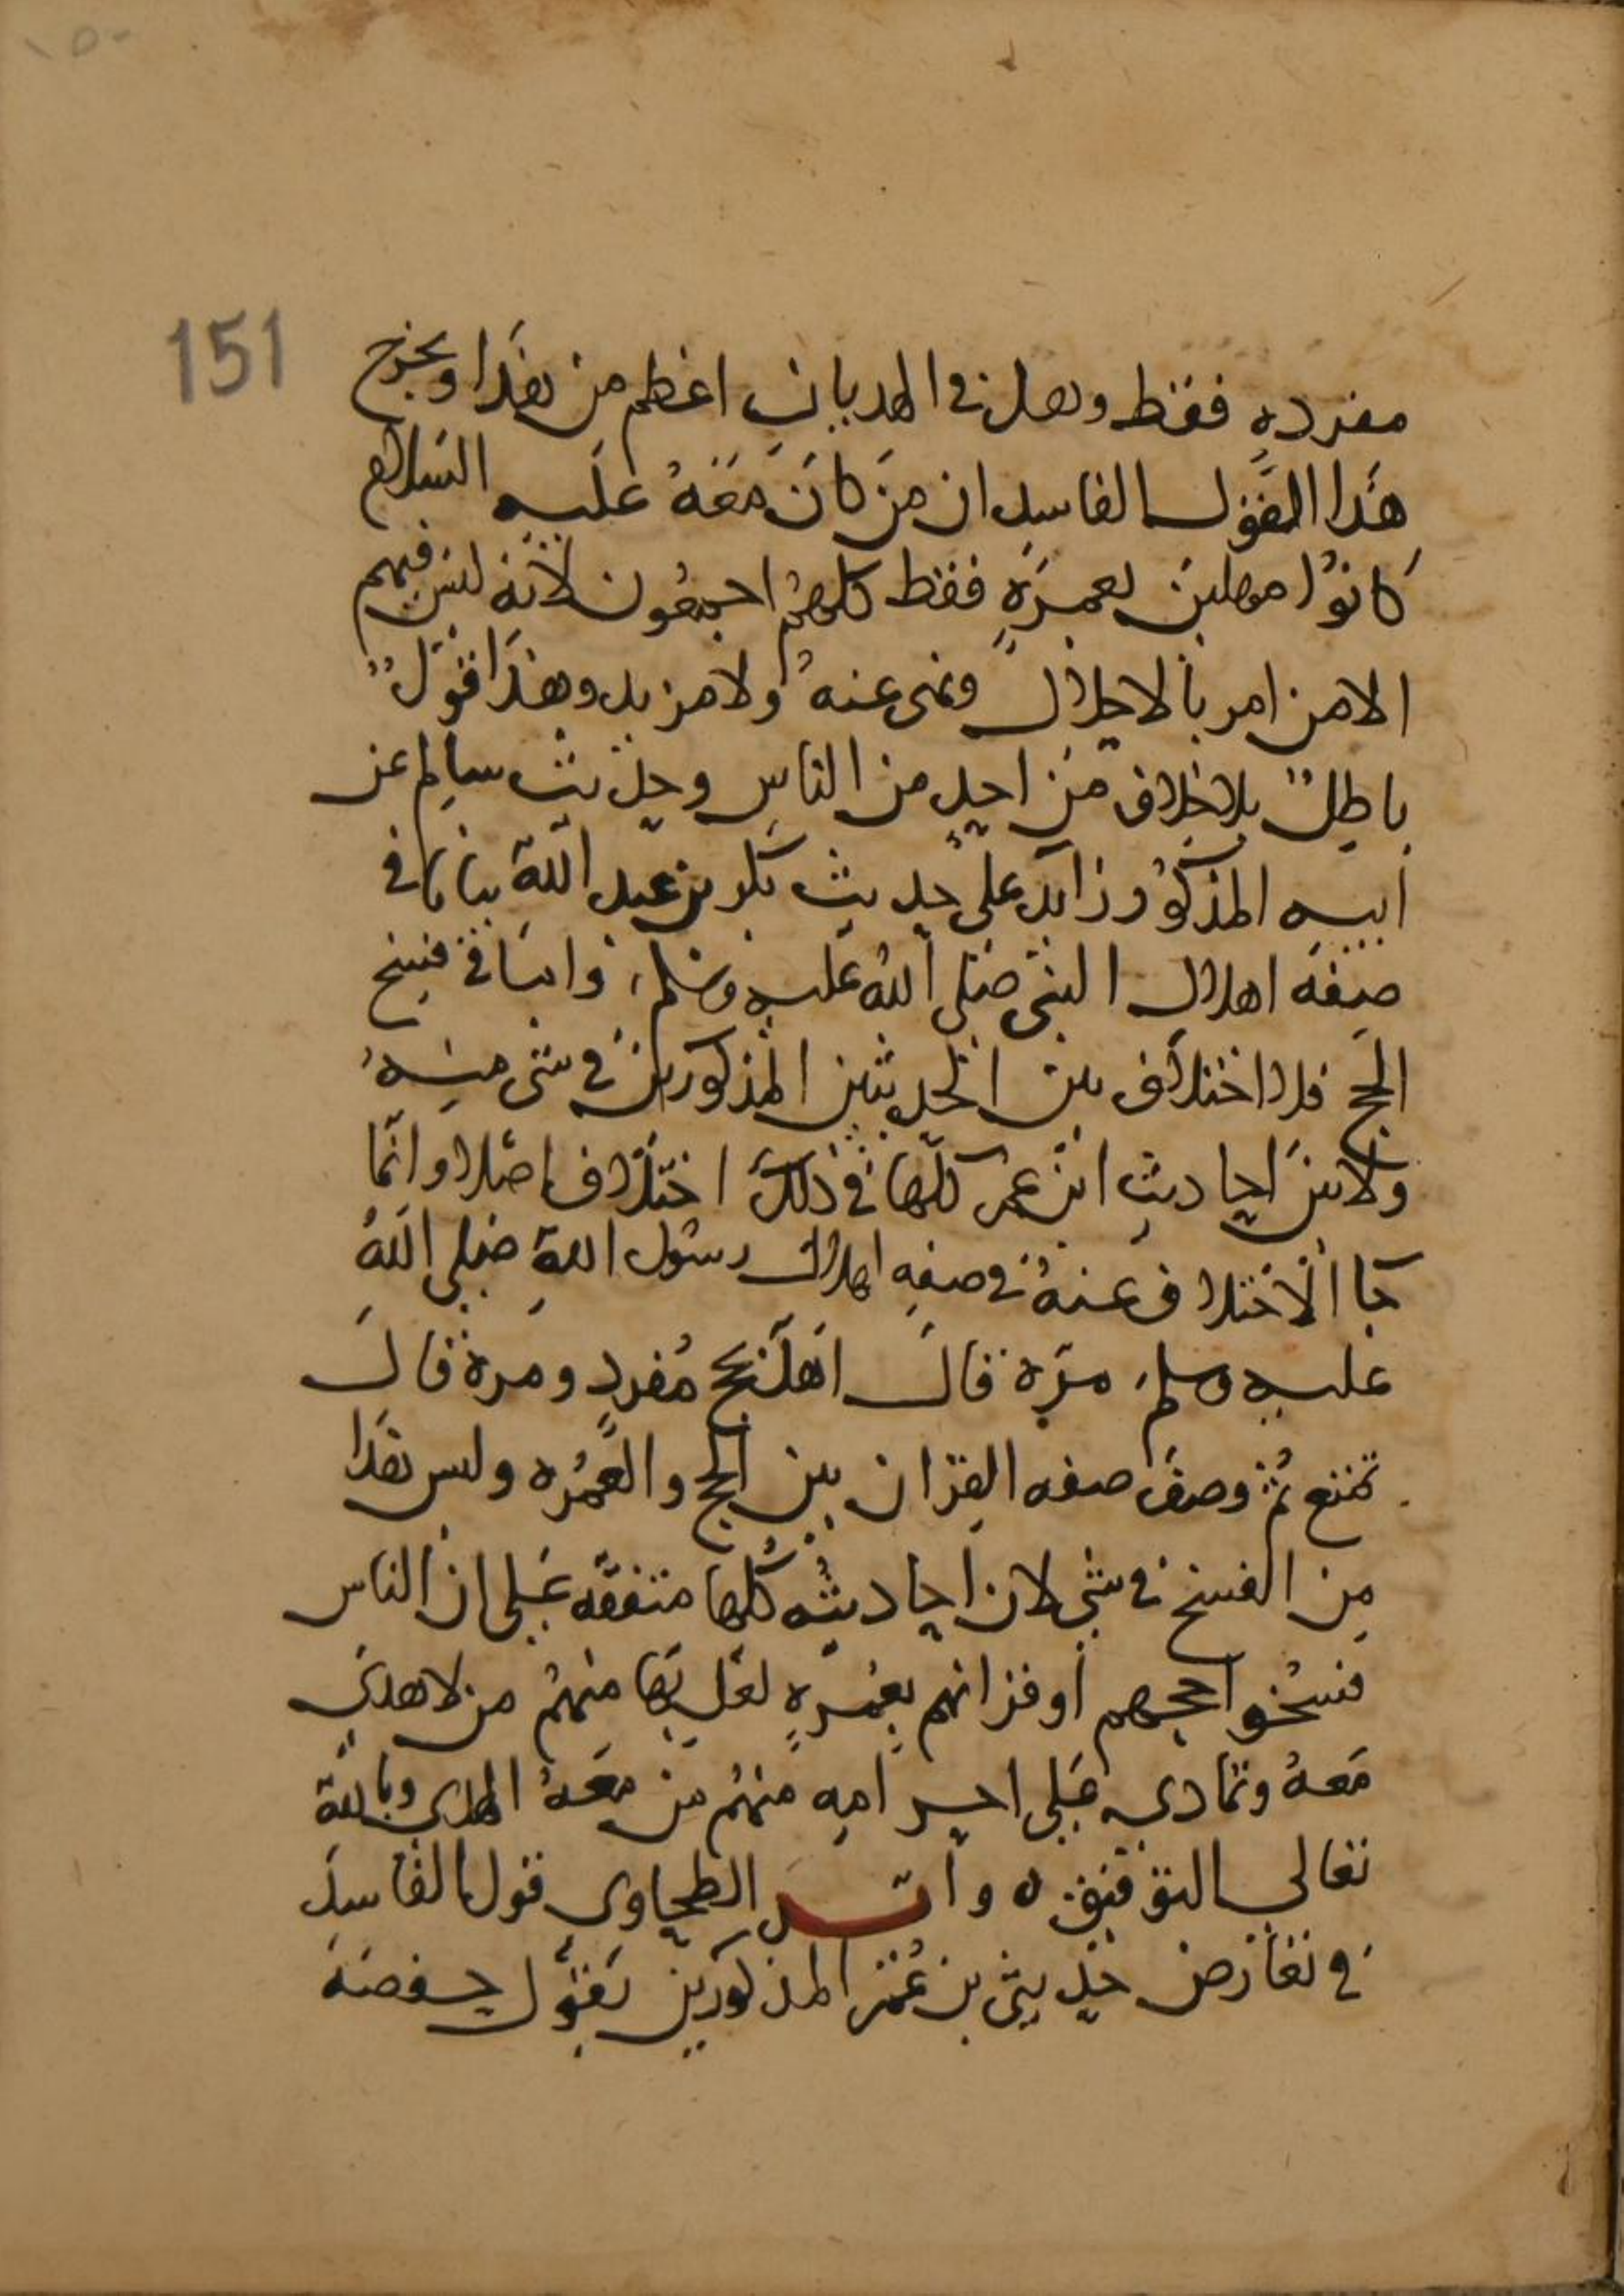 ١٥٠
151
مفرده فقط وهل في الهديان اعظم من هذا ويخرج
هذا القول الفاسد ان من كان معه عليه السلام
كانوا مهلين بعمرة فقط كلهم اجمعون لانه ليس فيهم
الا من امر بالاحلال ونهى عنه ولا مزيد وهذا قول
باطل بلا خلاف من احد من الناس وحديث سالم عن
ابيه المذكور زايد على حديث بكر بن عبد الله بيانا في
صفة اهلال النبي صلى الله عليه وسلم، واتيا في فسخ
الحج فلا اختلاف بين الحديثين المذكورين في شي منه
ولا بين احاديث ابن عمر كلها في ذلك اختلاف اصلا وانما
جا الاختلاف عنه في صفه اهلال رسول الله صلى الله
عليه وسلم، مرة قال اهل بحج مفرد ومرة قال
تمتع ثم وصف صفه القران بين الحج والعمره وليس هذا
من الفسخ في شي لان احاديثه كلها متفقه على ان الناس
فسخوا حجهم او قرانهم بعمرة لعل بها منهم من لا هدي
معه وتمادى على احرامه منهم من معه الهدي وبالله
تعالى التوفيق ه و الطحاوي قول الفاسد
في تعارض حديثي بن عمر المذكورين بقول حفصة